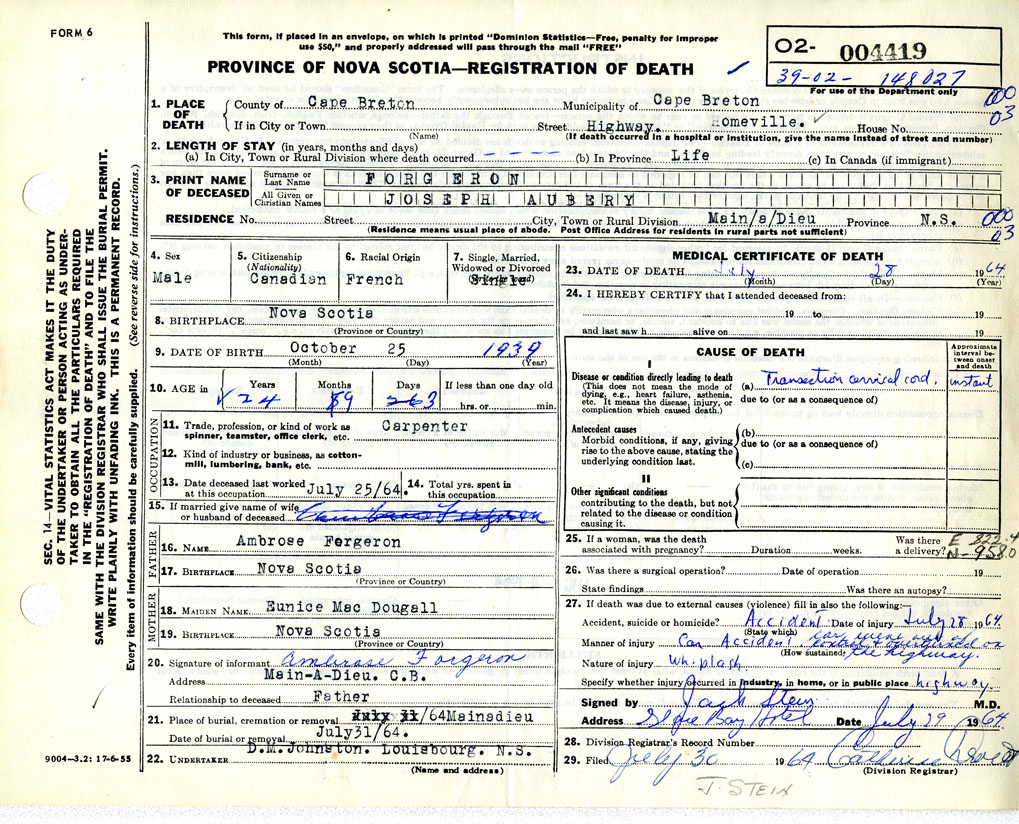 FORM 6
This form, if placed in an envelope, on which is printed "Dominion Statistics—Free, penalty for improper
use $50," and properly addressed will pass through the mail "FREE"
PROVINCE OF NOVA SCOTIA—REGISTRATION OF DEATH
02- 004419
39-02- 148027
For use of the Department only
000
03
1. PLACE OF DEATH
County of Cape Breton Municipality of Cape Breton
If in City or Town Street Highway. Homeville. House No.
(Name) (If death occurred in a hospital or institution, give the name instead of street and number)
2. LENGTH OF STAY (in years, months and days)
(a) In City, Town or Rural Division where death occurred - - - - (b) In Province Life (c) In Canada (if immigrant)
3. PRINT NAME OF DECEASED
Surname or Last Name FORGERON
All Given or Christian Names JOSEPH AUBERY
RESIDENCE No. Street City, Town or Rural Division Main/a/Dieu Province N.S.
000
03
(Residence means usual place of abode. Post Office Address for residents in rural parts not sufficient)
4. Sex
Male
5. Citizenship
(Nationality)
Canadian
6. Racial Origin
French
7. Single, Married,
Widowed or Divorced
Single
8. BIRTHPLACE Nova Scotia
(Province or Country)
9. DATE OF BIRTH October 25 1939
(Month) (Day) (Year)
10. AGE in Years Months Days If less than one day old
24 9 3 hrs. or min.
OCCUPATION
11. Trade, profession, or kind of work as
spinner, teamster, office clerk, etc. Carpenter
12. Kind of industry or business, as cotton-
mill, lumbering, bank, etc.
13. Date deceased last worked
at this occupation July 25/64.
14. Total yrs. spent in
this occupation
15. If married give name of wife
or husband of deceased Ambrose Forgeron
FATHER
16. NAME Ambrose Forgeron
17. BIRTHPLACE Nova Scotia
(Province or Country)
MOTHER
18. MAIDEN NAME Eunice Mac Dougall
19. BIRTHPLACE Nova Scotia
(Province or Country)
20. Signature of informant Ambrose Forgeron
Address Main-A-Dieu. C.B.
Relationship to deceased Father
21. Place of burial, cremation or removal July 31/64Mainadieu
Date of burial or removal July31/64.
22. UNDERTAKER D.M.Johnston. Louisbourg. N.S.
(Name and address)
MEDICAL CERTIFICATE OF DEATH
23. DATE OF DEATH July 28 1964
(Month) (Day) (Year)
24. I HEREBY CERTIFY that I attended deceased from:
19 to 19
and last saw h alive on 19
CAUSE OF DEATH
Approximate interval between onset and death
I
Disease or condition directly leading to death
(This does not mean the mode of
dying, e.g., heart failure, asthenia,
etc. It means the disease, injury, or
complication which caused death.)
(a) Transection cervical cord. instant
due to (or as a consequence of)
Antecedent causes
Morbid conditions, if any, giving
rise to the above cause, stating the
underlying condition last.
(b)
due to (or as a consequence of)
(c)
II
Other significant conditions
contributing to the death, but not
related to the disease or condition
causing it.
25. If a woman, was the death
associated with pregnancy? Duration weeks. Was there
a delivery?
E 822.4
N-958.0
26. Was there a surgical operation? Date of operation 19
State findings Was there an autopsy?
27. If death was due to external causes (violence) fill in also the following:—
Accident, suicide or homicide? Accident Date of injury July 28 1964
(State which)
Manner of injury Car Accident car went out of
control & overturned on
(How sustained) the highway.
Nature of injury whiplash
Specify whether injury occurred in industry, in home, or in public place highway.
Signed by Jack Stein M.D.
Address Glace Bay Hotel Date July 29 1964
28. Division Registrar's Record Number
29. Filed July 30 1964 Catherine
(Division Registrar)
J. STEIN
SEC. 14—VITAL STATISTICS ACT MAKES IT THE DUTY
OF THE UNDERTAKER OR PERSON ACTING AS UNDER-
TAKER TO OBTAIN ALL THE PARTICULARS REQUIRED
IN THE "REGISTRATION OF DEATH" AND TO FILE THE
SAME WITH THE DIVISION REGISTRAR WHO SHALL ISSUE THE BURIAL PERMIT.
WRITE PLAINLY WITH UNFADING INK. THIS IS A PERMANENT RECORD.
Every item of information should be carefully supplied. (See reverse side for instructions.)
9004—3.2: 17-6-55